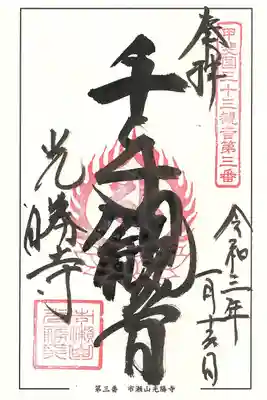 奉拝
甲斐国三十三観音第三番
千手観音
光勝寺
令和三年
第三番　市瀬山光勝寺